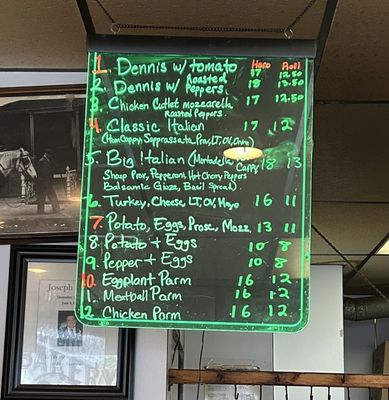 Hero Roll
1. Dennis w/ tomato 17 12.50
2. Dennis w/ Roasted Peppers 18 13.50
3. Chicken Cutlet mozzarella 17 12.50
Roasted Peppers
4. Classic Italian 17 12
(Ham Cappy Sopprassata Prov, LT, OV,
5. Big Italian (Mortadella Cappy, 18 13
Sharp Prov, Pepperoni, Hot Cherry Peppers
Balsamic Glaze, Basil Spread)
6. Turkey, Cheese, LT, OV, Mayo 16 11
7. Potato, Eggs, Prosc, Mozz 13 11
8. Potato + Eggs 10 8
9. Pepper + Eggs 10 8
10. Eggplant Parm 16 12
11. Meatball Parm 16 12
12. Chicken Parm 16 12
Joseph